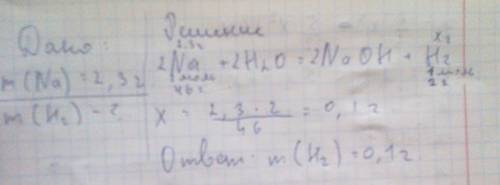 Дано:
m(Na)=2,3г
m(H₂)-?
Решение
2,3г х г
2Na + 2H₂O = 2NaOH + H₂
2моль 1моль
46г 2г
X = 2,3·2 / 46 = 0,1г
Ответ: m(H₂)=0,1г.